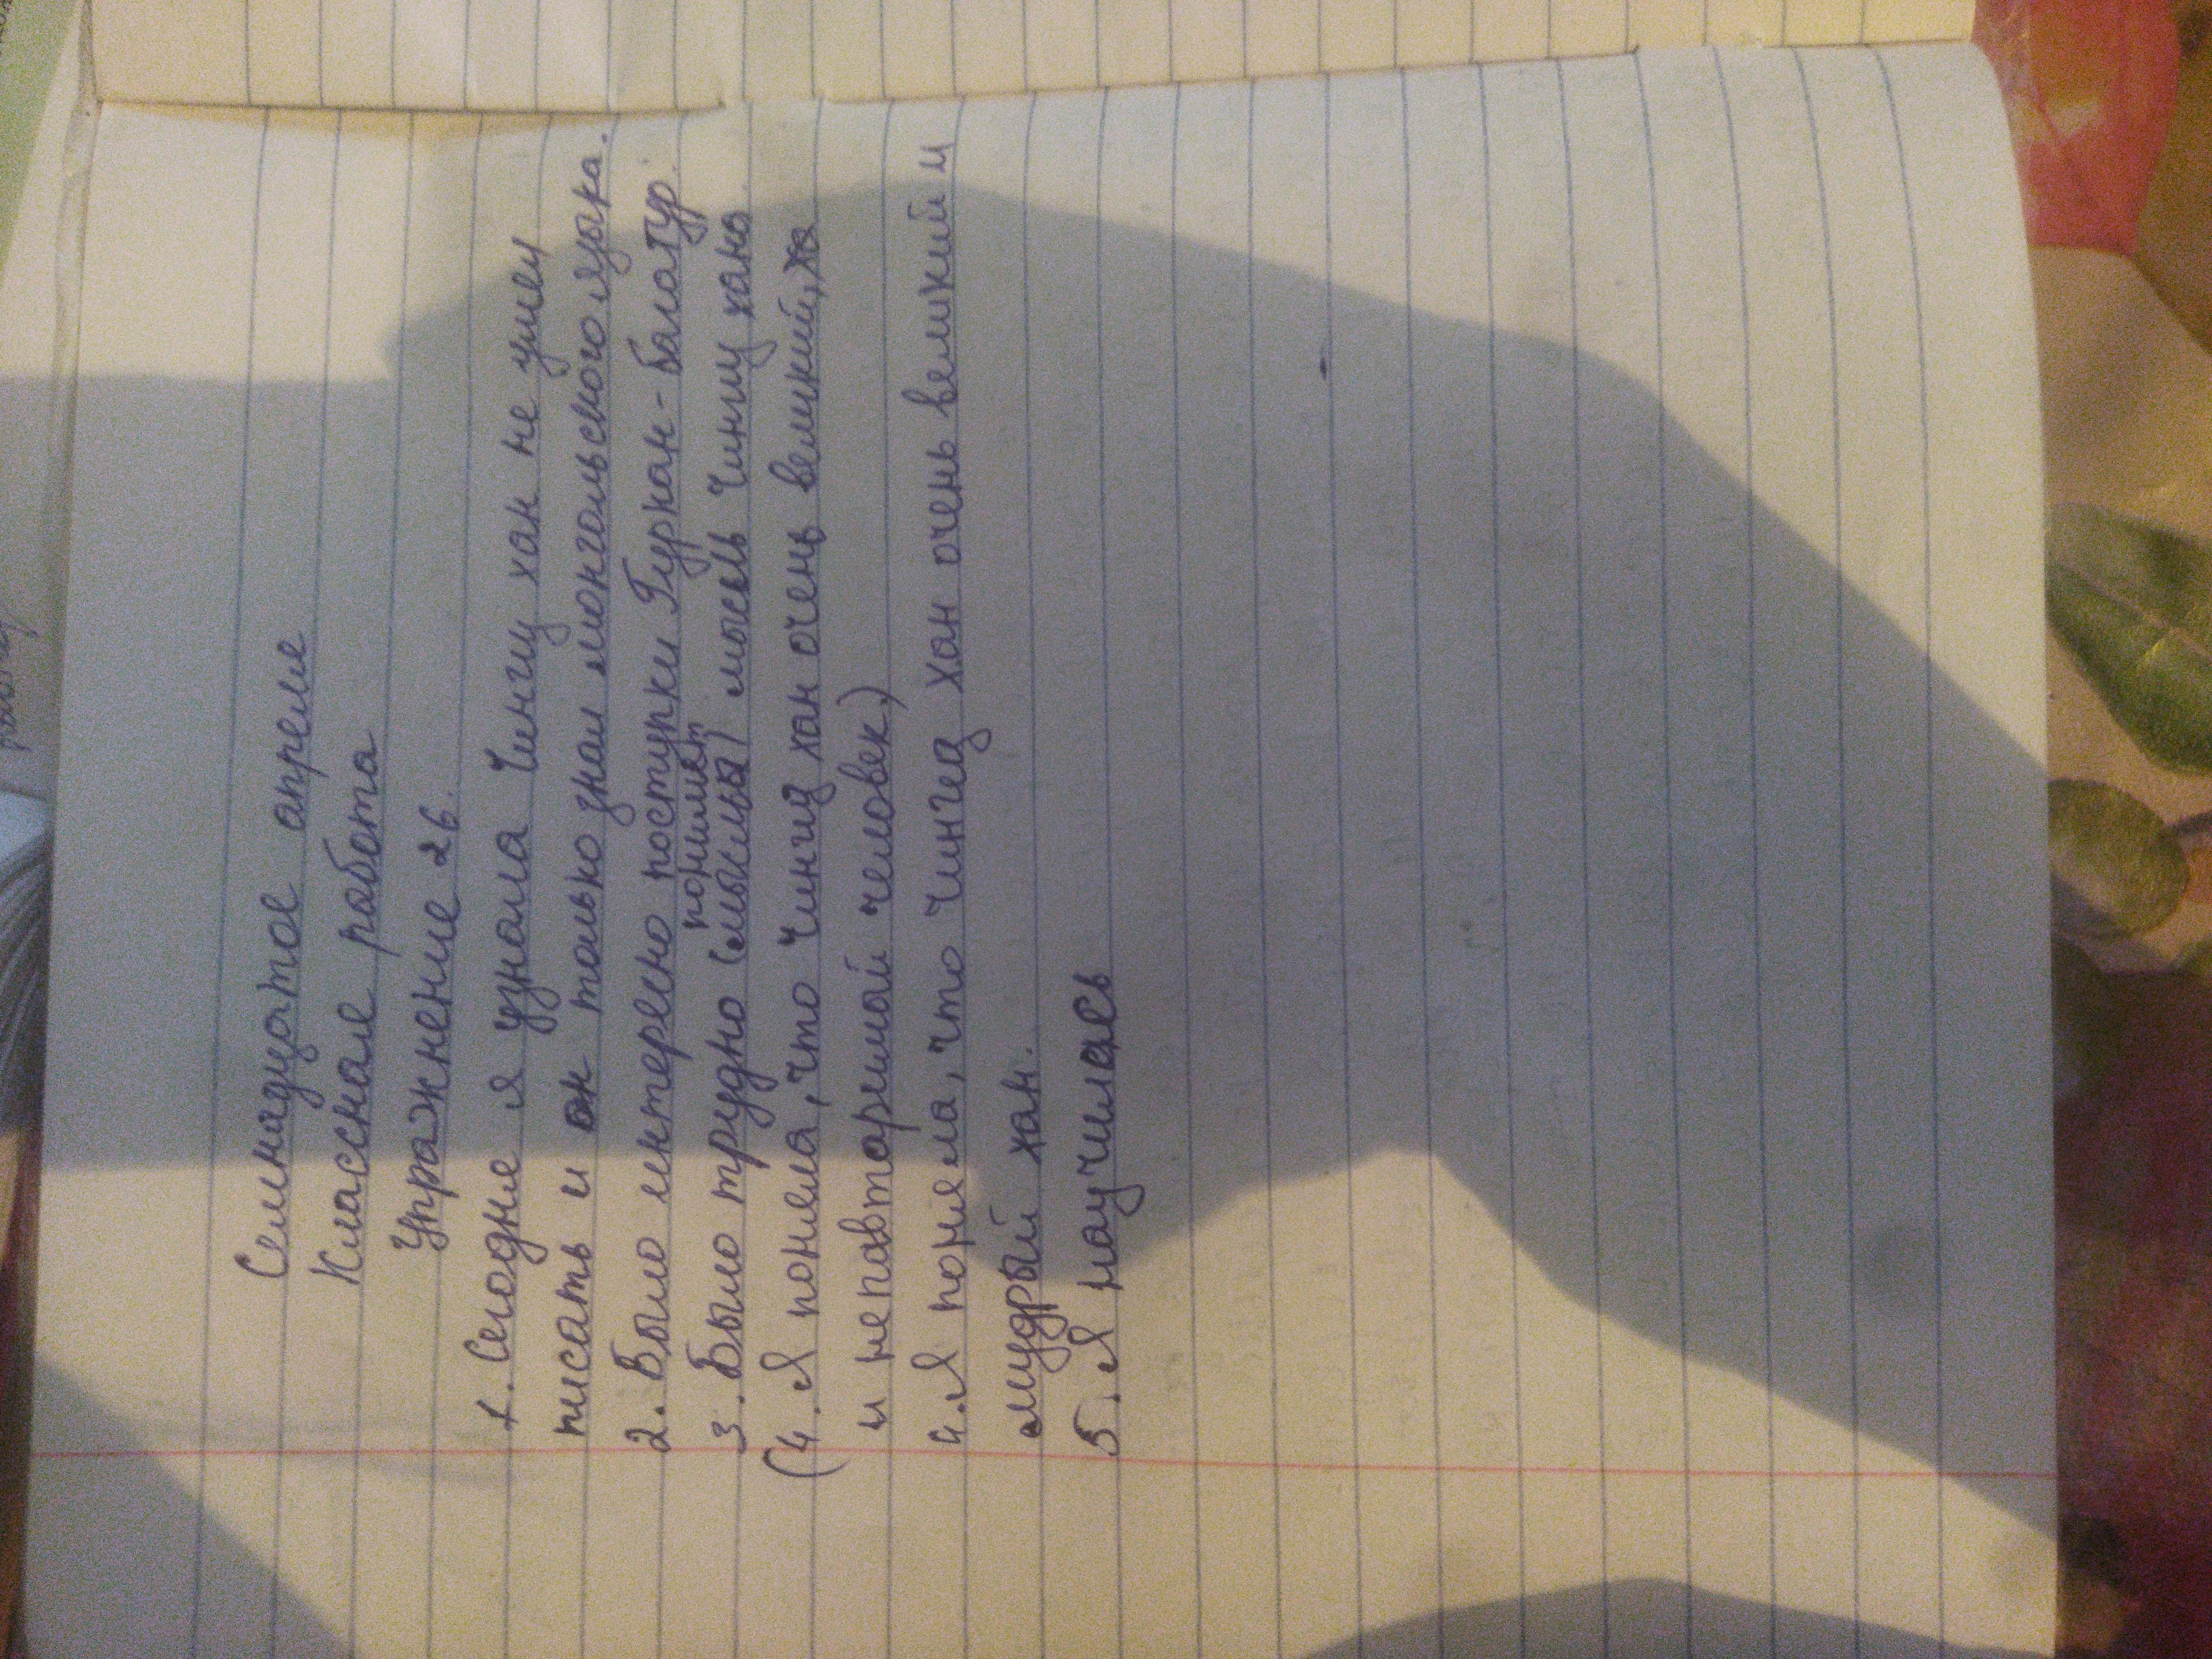 Семнадцатое апреля
Классная работа
Упражнение 26.
1. Сегодня я узнала Чингу хан не умел
писать и он только знал монгольского языка.
2. Было интересно поступки Гуркан-багатур.
понимат
3. Было трудно (мысльа) мысль Чингу хана
(4. Я поняла, что Чингид хан очень великий, ха
и непавторимой человек)
4. Я поняла, что Чингид хан очень великий и
мудрый хан.
5. Я научилась